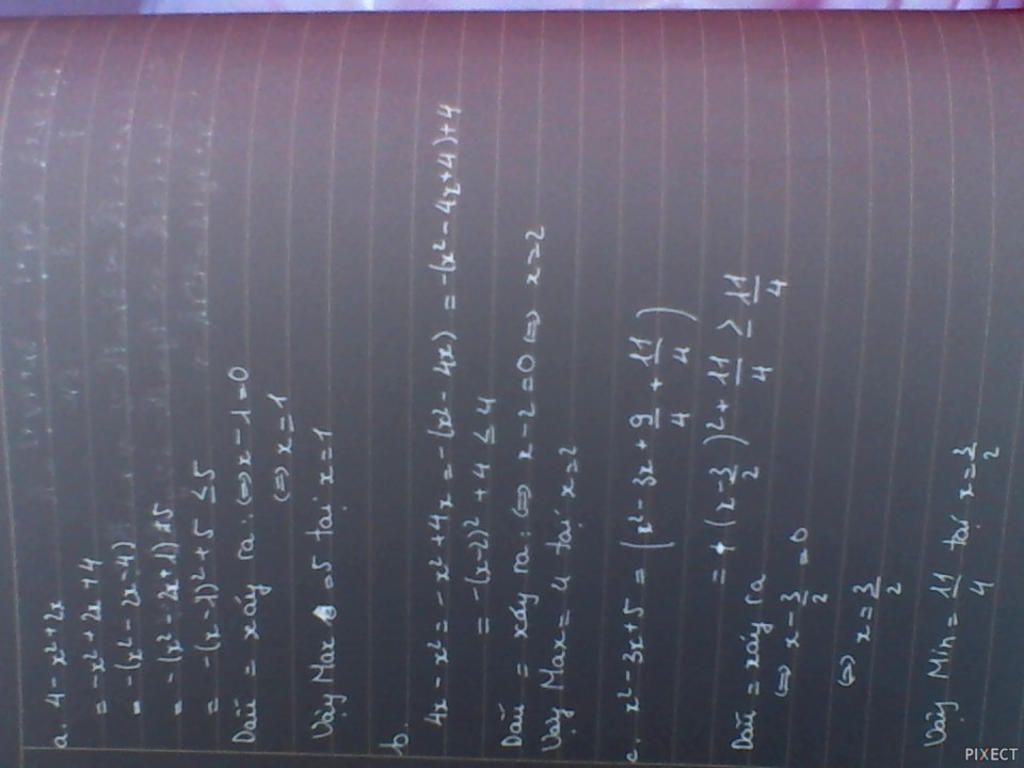 a. 4 - x² + 2x
= -x² + 2x + 4
= -(x² - 2x - 4)
= -(x² - 2x + 1) + 5
= -(x - 1)² + 5 ≤ 5
Dấu = xảy ra: ⇔ x - 1 = 0
⇔ x = 1
Vậy Max = 5 tại x = 1
b.
4x - x² = -x² + 4x = -(x² - 4x) = -(x² - 4x + 4) + 4
= -(x - 2)² + 4 ≤ 4
Dấu = xảy ra: ⇔ x - 2 = 0 ⇔ x = 2
Vậy Max = 4 tại x = 2
c. x² - 3x + 5 = (x² - 3x + 9/4 + 11/4)
= (x - 3/2)² + 11/4 ≥ 11/4
Dấu = xảy ra
⇔ x - 3/2 = 0
⇔ x = 3/2
Vậy Min = 11/4 tại x = 3/2
PIXECT